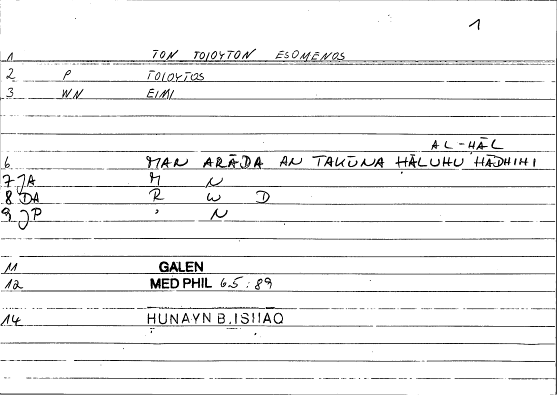 1
1 TON TOIOYTON ESOMENOS
2 P TOIOYTOS
3 WN EIMI
AL-HĀL
6 MAN ARĀDA AN TAKŪNA HĀLUHU HĀDHIHI
7 JA M N
8 DA R W D
9 JP ' N
11 GALEN
12 MED PHIL 65:89
14 HUNAYN B.ISHAQ